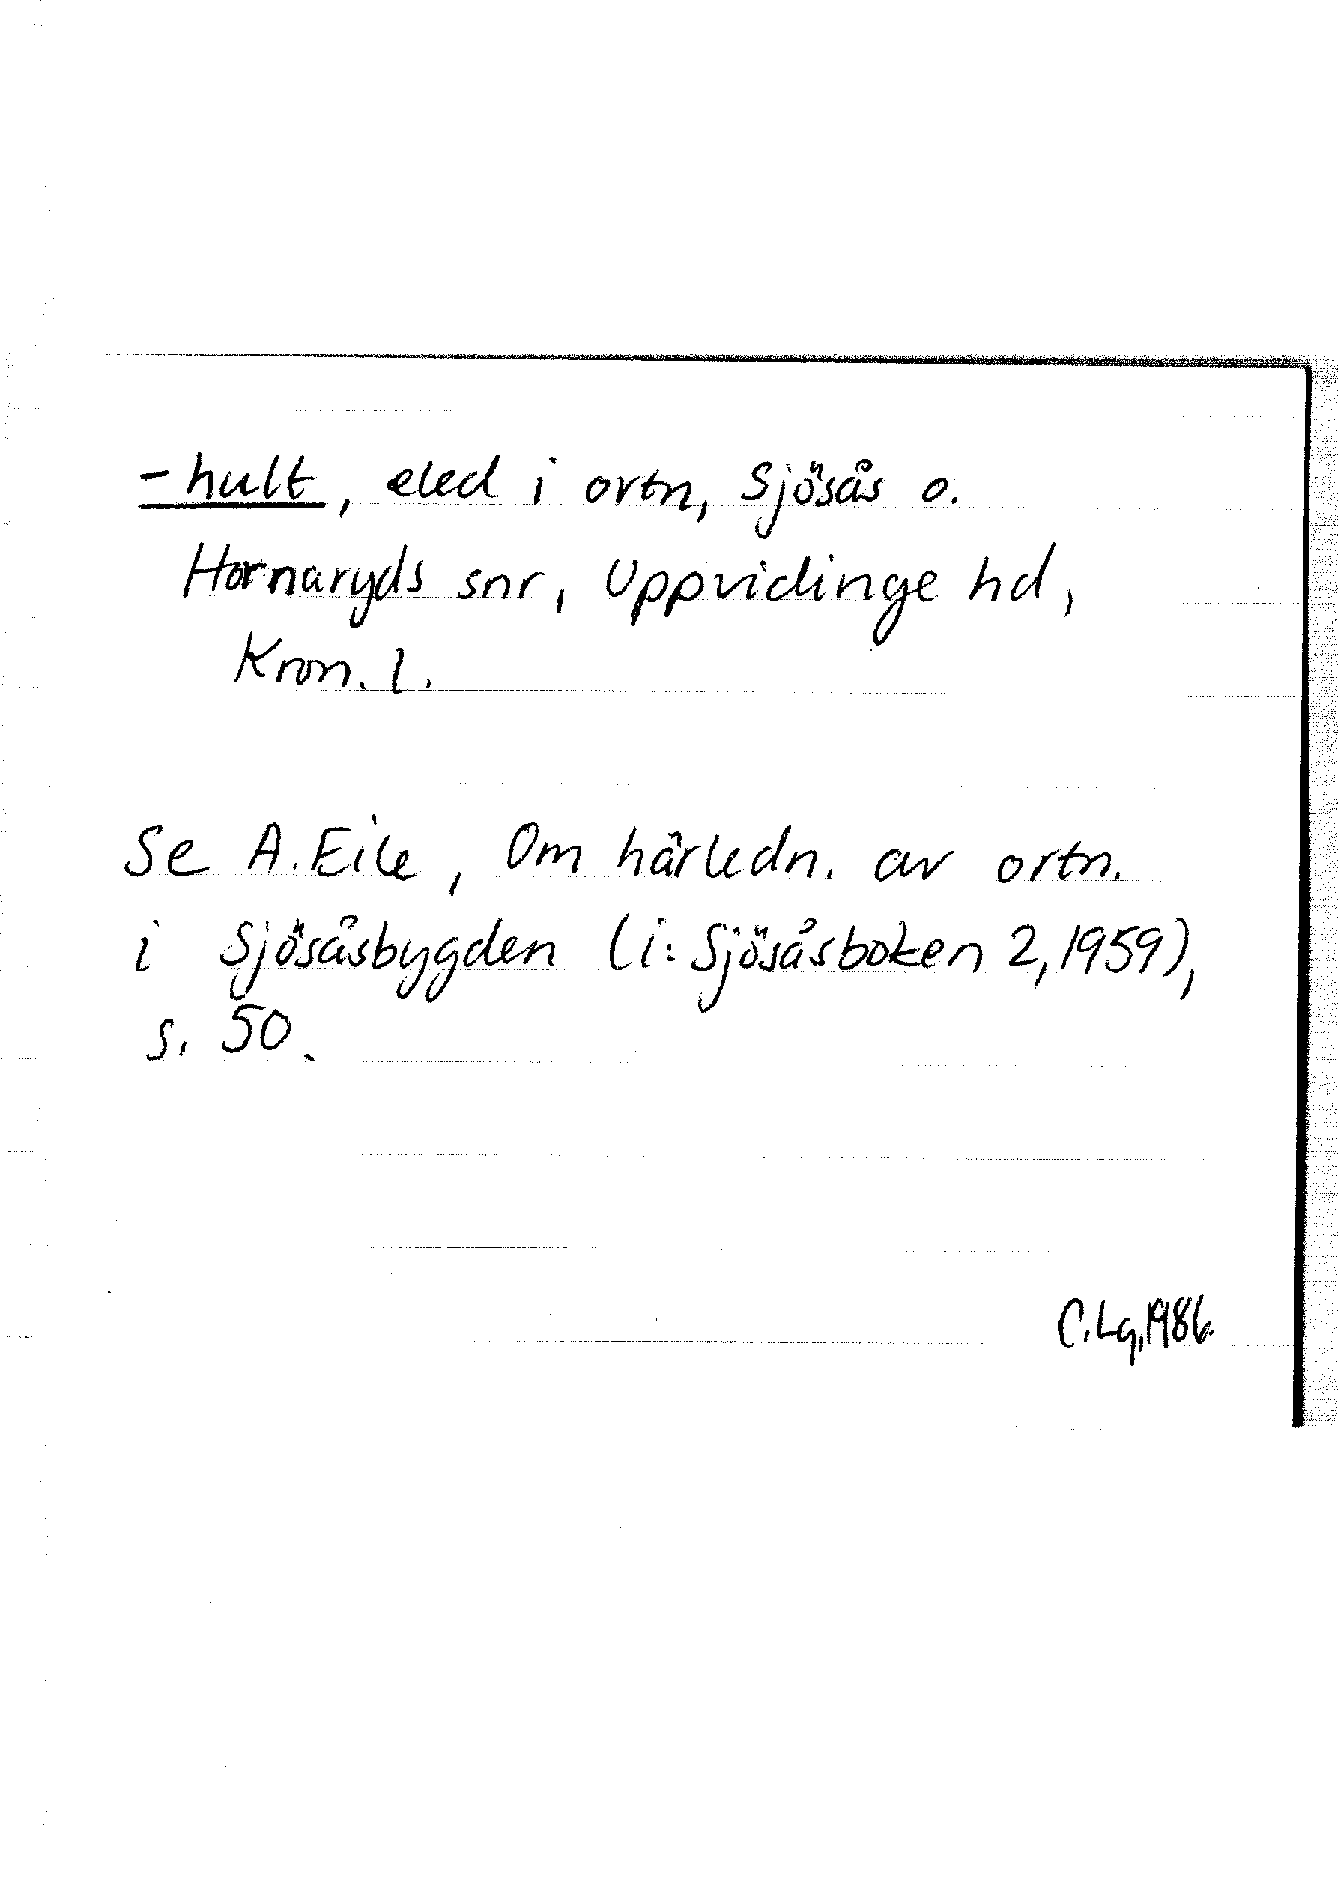 -hult, eled i ortn, Sjösås o.
Hornaryds snr, Uppvidinge hd,
Kron. l.
Se A. Eile, Om härledn. av ortn.
i Sjösåsbygden (i: Sjösåsboken 2, 1959),
s. 50.
C. Lg, 1986.